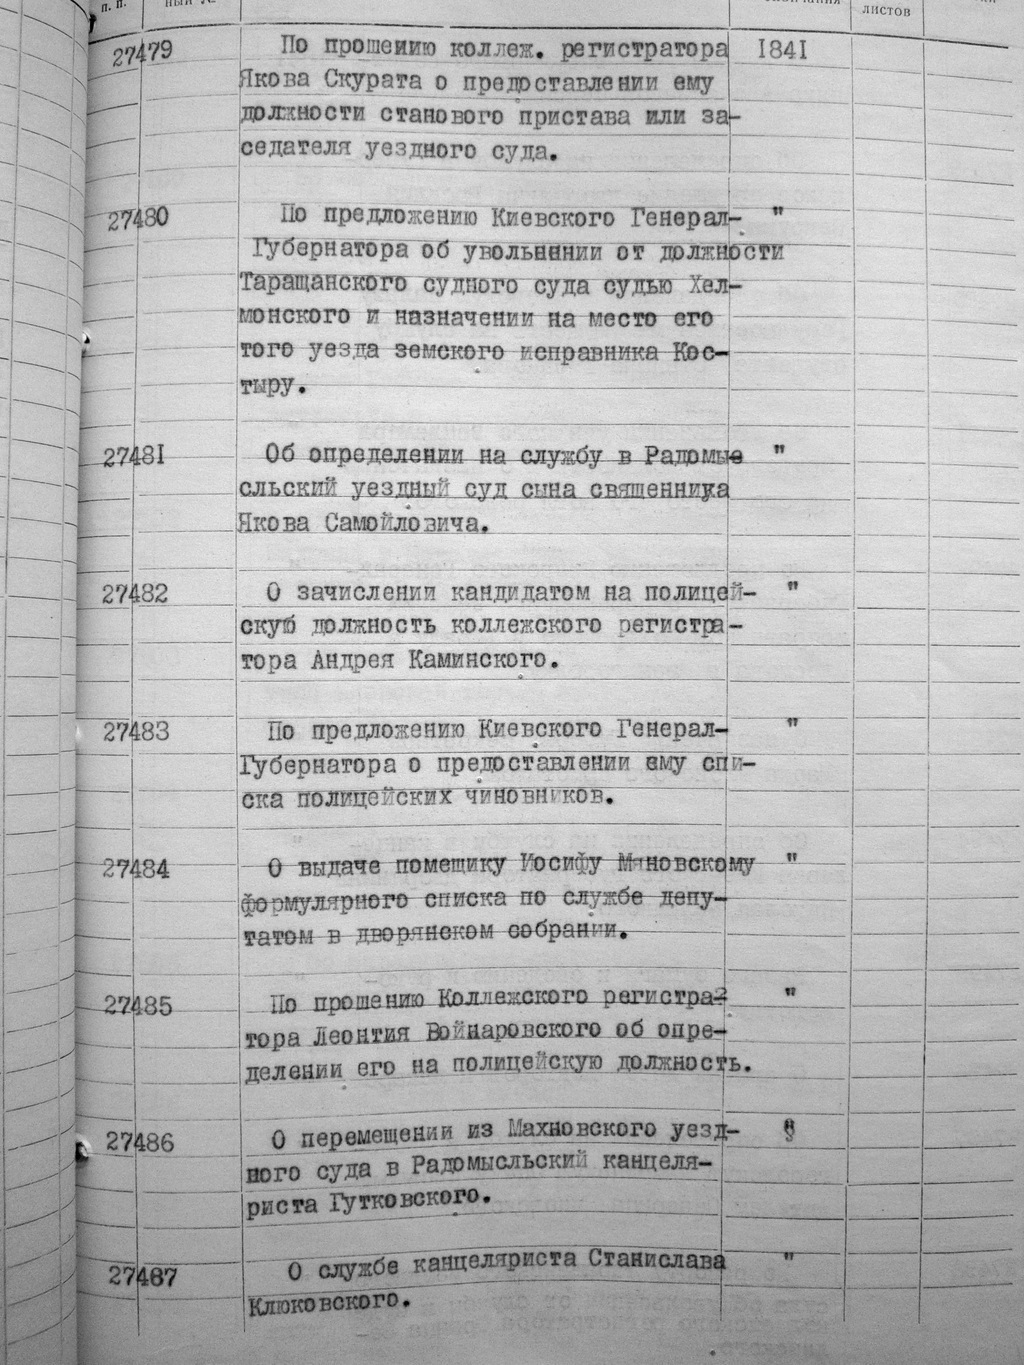 п. п.
листов
27479 По прошению коллеж. регистратора 1841
Якова Скурата о предоставлении ему
должности станового пристава или за-
седателя уездного суда.
27480 По предложению Киевского Генерал- "
Губернатора об увольнении от должности
Таращанского судного суда судью Хел-
монского и назначении на место его
того уезда земского исправника Кос-
тыру.
27481 Об определении на службу в Радомы- "
сльский уездный суд сына священника
Якова Самойловича.
27482 О зачислении кандидатом на полицей- "
скую должность коллежского регистра-
тора Андрея Каминского.
27483 По предложению Киевского Генерал- "
Губернатора о предоставлении ему спи-
ска полицейских чиновников.
27484 О выдаче помещику Иосифу Мяновскому "
формулярного списка по службе депу-
татом в дворянском собрании.
27485 По прошению Коллежского регистра- "
тора Леонтия Войнаровского об опре-
делении его на полицейскую должность.
27486 О перемещении из Махновского уезд- "
ного суда в Радомысльский канцеля-
риста Гутковского.
27487 О службе канцеляриста Станислава "
Клюковского.